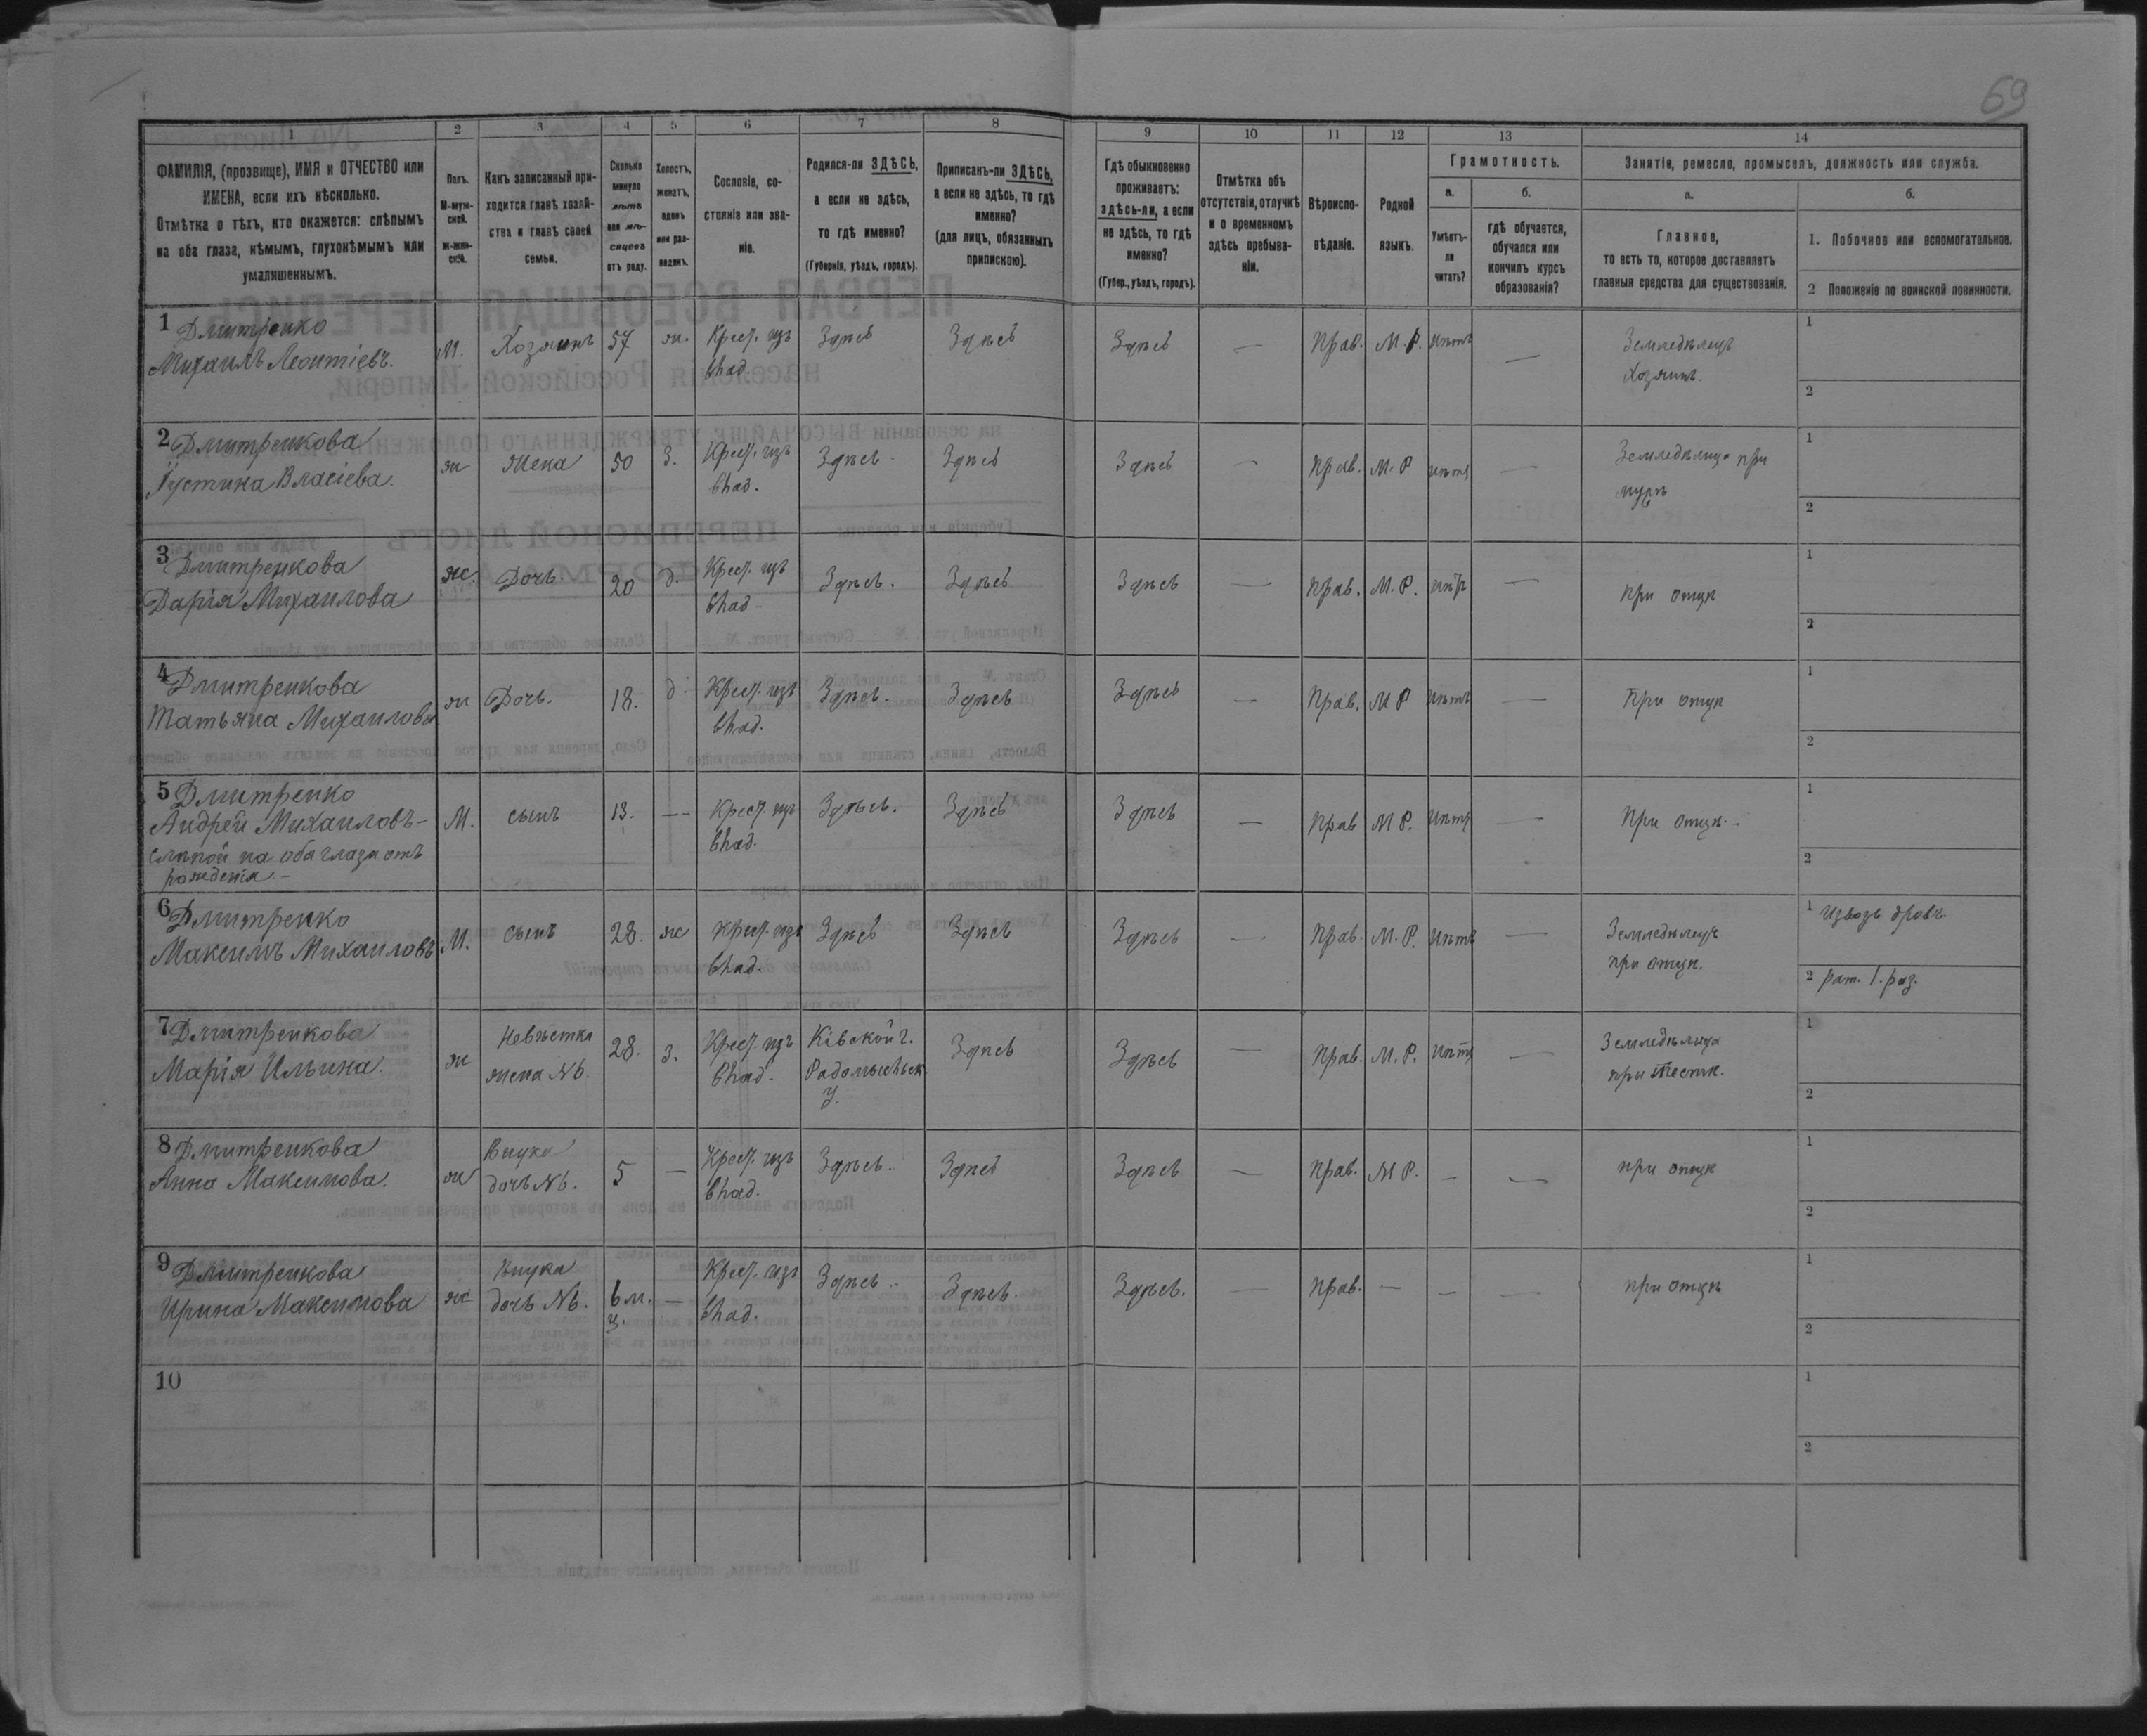 69
1
2
3
4
5
6
7
8
9
10
11
12
13
14
ФАМИЛІЯ, (прозвище), ИМЯ и ОТЧЕСТВО или
ИМЕНА, если ихъ нѣсколько.
Отмѣтка о тѣхъ, кто окажется: слѣпымъ
на оба глаза, нѣмымъ, глухонѣмымъ или
умалишеннымъ.
Полъ.
М-муж-
ской.
Ж-жен-
скій.
Какъ записанный при-
ходится главѣ хозяй-
ства и главѣ своей
семьи.
Сколько
минуло
лѣтъ
или мѣ-
сяцевъ
отъ роду.
Холостъ,
женатъ,
вдовъ
или раз-
веденъ.
Сословіе, со-
стояніе или зва-
ніе.
Родился-ли ЗДѢСЬ,
а если не здѣсь,
то гдѣ именно?
(Губернія, уѣздъ, городъ).
Приписанъ-ли ЗДѢСЬ,
а если не здѣсь, то гдѣ
именно?
(для лицъ, обязанныхъ
припискою).
Гдѣ обыкновенно
проживаетъ:
здѣсь-ли, а если
не здѣсь, то гдѣ
именно?
(Губер., уѣздъ, городъ).
Отмѣтка объ
отсутствіи, отлучкѣ
и о временномъ
здѣсь пребыва-
ніи.
Вѣроиспо-
вѣданіе.
Родной
языкъ.
Грамотность.
а.
Умѣетъ-
ли
читать?
б.
гдѣ обучается,
обучался или
кончилъ курсъ
образованія?
Занятія, ремесло, промыселъ, должность или служба.
а.
Главное,
то есть то, которое доставляетъ
главныя средства для существованія.
б.
1. Побочное или вспомогательное.
2 Положеніе по воинской повинности.
1 Дмитренко
Михаилъ Леонтіевъ. М. Хозяинъ 57 ж. Крест. изъ Здѣсь Здѣсь Здѣсь — Прав. М. Р. нѣтъ — Земледѣлецъ 1
влад. Хозяинъ. 2
2 Дмитренкова
Іустина Власіева. ж Жена 50 З. Крест. изъ Здѣсь Здѣсь Здѣсь — Прав. М. Р нѣтъ — Земледѣлица при 1
влад. мужѣ 2
3 Дмитренкова
Дарія Михаилова ж. Дочь 20 д. Крест. изъ Здѣсь. Здѣсь Здѣсь — Прав. М. Р. — при отцѣ 1
влад 2
4 Дмитренкова
Татьяна Михаилова ж Дочь. 18. д. Крест. изъ Здѣсь. Здѣсь Здѣсь — Прав. М Р нѣтъ — При отцѣ 1
влад. 2
5 Дмитренко
Андрей Михаиловъ- М. сынъ 13. — Крест. изъ Здѣсь. Здѣсь Здѣсь — Прав М Р. нѣтъ — При отцѣ.- 1
слѣпой на оба глаза отъ влад. 2
рожденія.-
6 Дмитренко
Максимъ Михаиловъ М. сынъ 28. ж Крест. изъ Здѣсь Здѣсь Здѣсь — Прав. М. Р. нѣтъ — Земледѣлецъ 1 Извозъ дровъ.
влад. при отцѣ. 2 рат. 1. раз.
7 Дмитренкова Невѣстка
Марія Ильина. ж жена №6. 28. з. Крест. изъ Кіевской г. Здѣсь Здѣсь — Прав. М. Р. нѣтъ — Земледѣлица 1
влад. Радомысльск. при тестѣ. 2
у.
8 Дмитренкова Внука
Анна Максимова. ж дочь №6. 5 — Крест. изъ Здѣсь. Здѣсь Здѣсь — Прав. М Р. — — при отцѣ 1
влад. 2
9 Дмитренкова Внука
Ирина Максимова ж дочь №6. 6 м. — Крест. изъ Здѣсь Здѣсь. Здѣсь. — Прав. — — — при отцѣ 1
ц. влад. 2
10 1
2